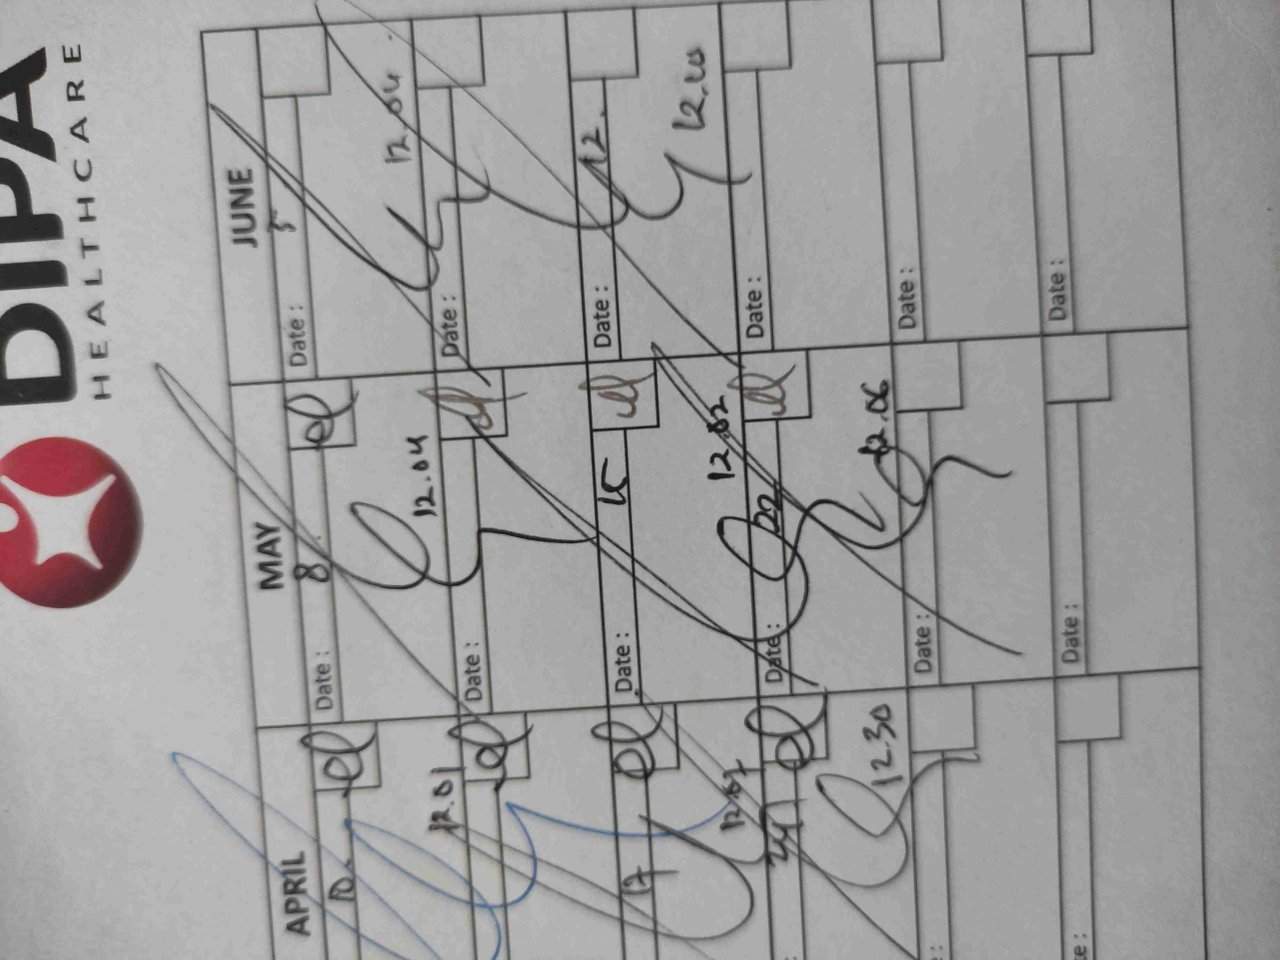 DIPA
HEALTHCARE
APRIL MAY JUNE
10 Date : 8 el Date : 5
el
12.01 12.04 12.04
Date : Date :
el
17 Date : 15 Date : 12
el
12.02
24 Date : 22 Date :
el
12.30 12.06
Date : Date :
Date : Date :